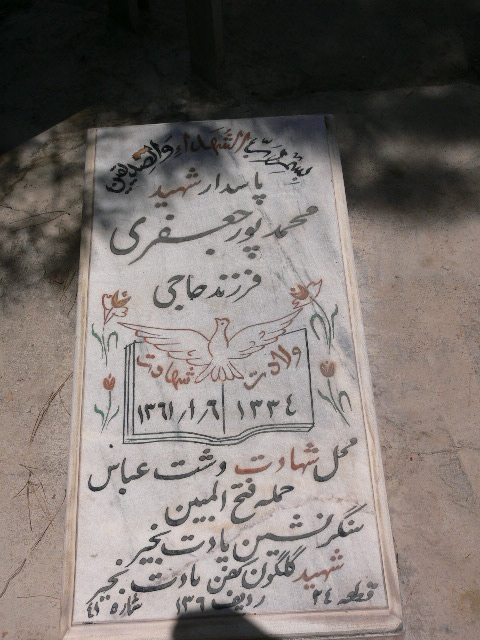 بسم رب الشهداء والصدیقین
پاسدار شهید
محمد پور جعفری
فرزند حاجی
ولادت شهادت
۱۳۳۴ ۱۳۶۱/۱/۶
محل شهادت دشت عباس
حمله فتح المبین
سنگر نشین یادت بخیر
شهید گلگون کفن یادت بخیر
قطعه ۲۴ ردیف ۱۳۶ شماره ۴۱